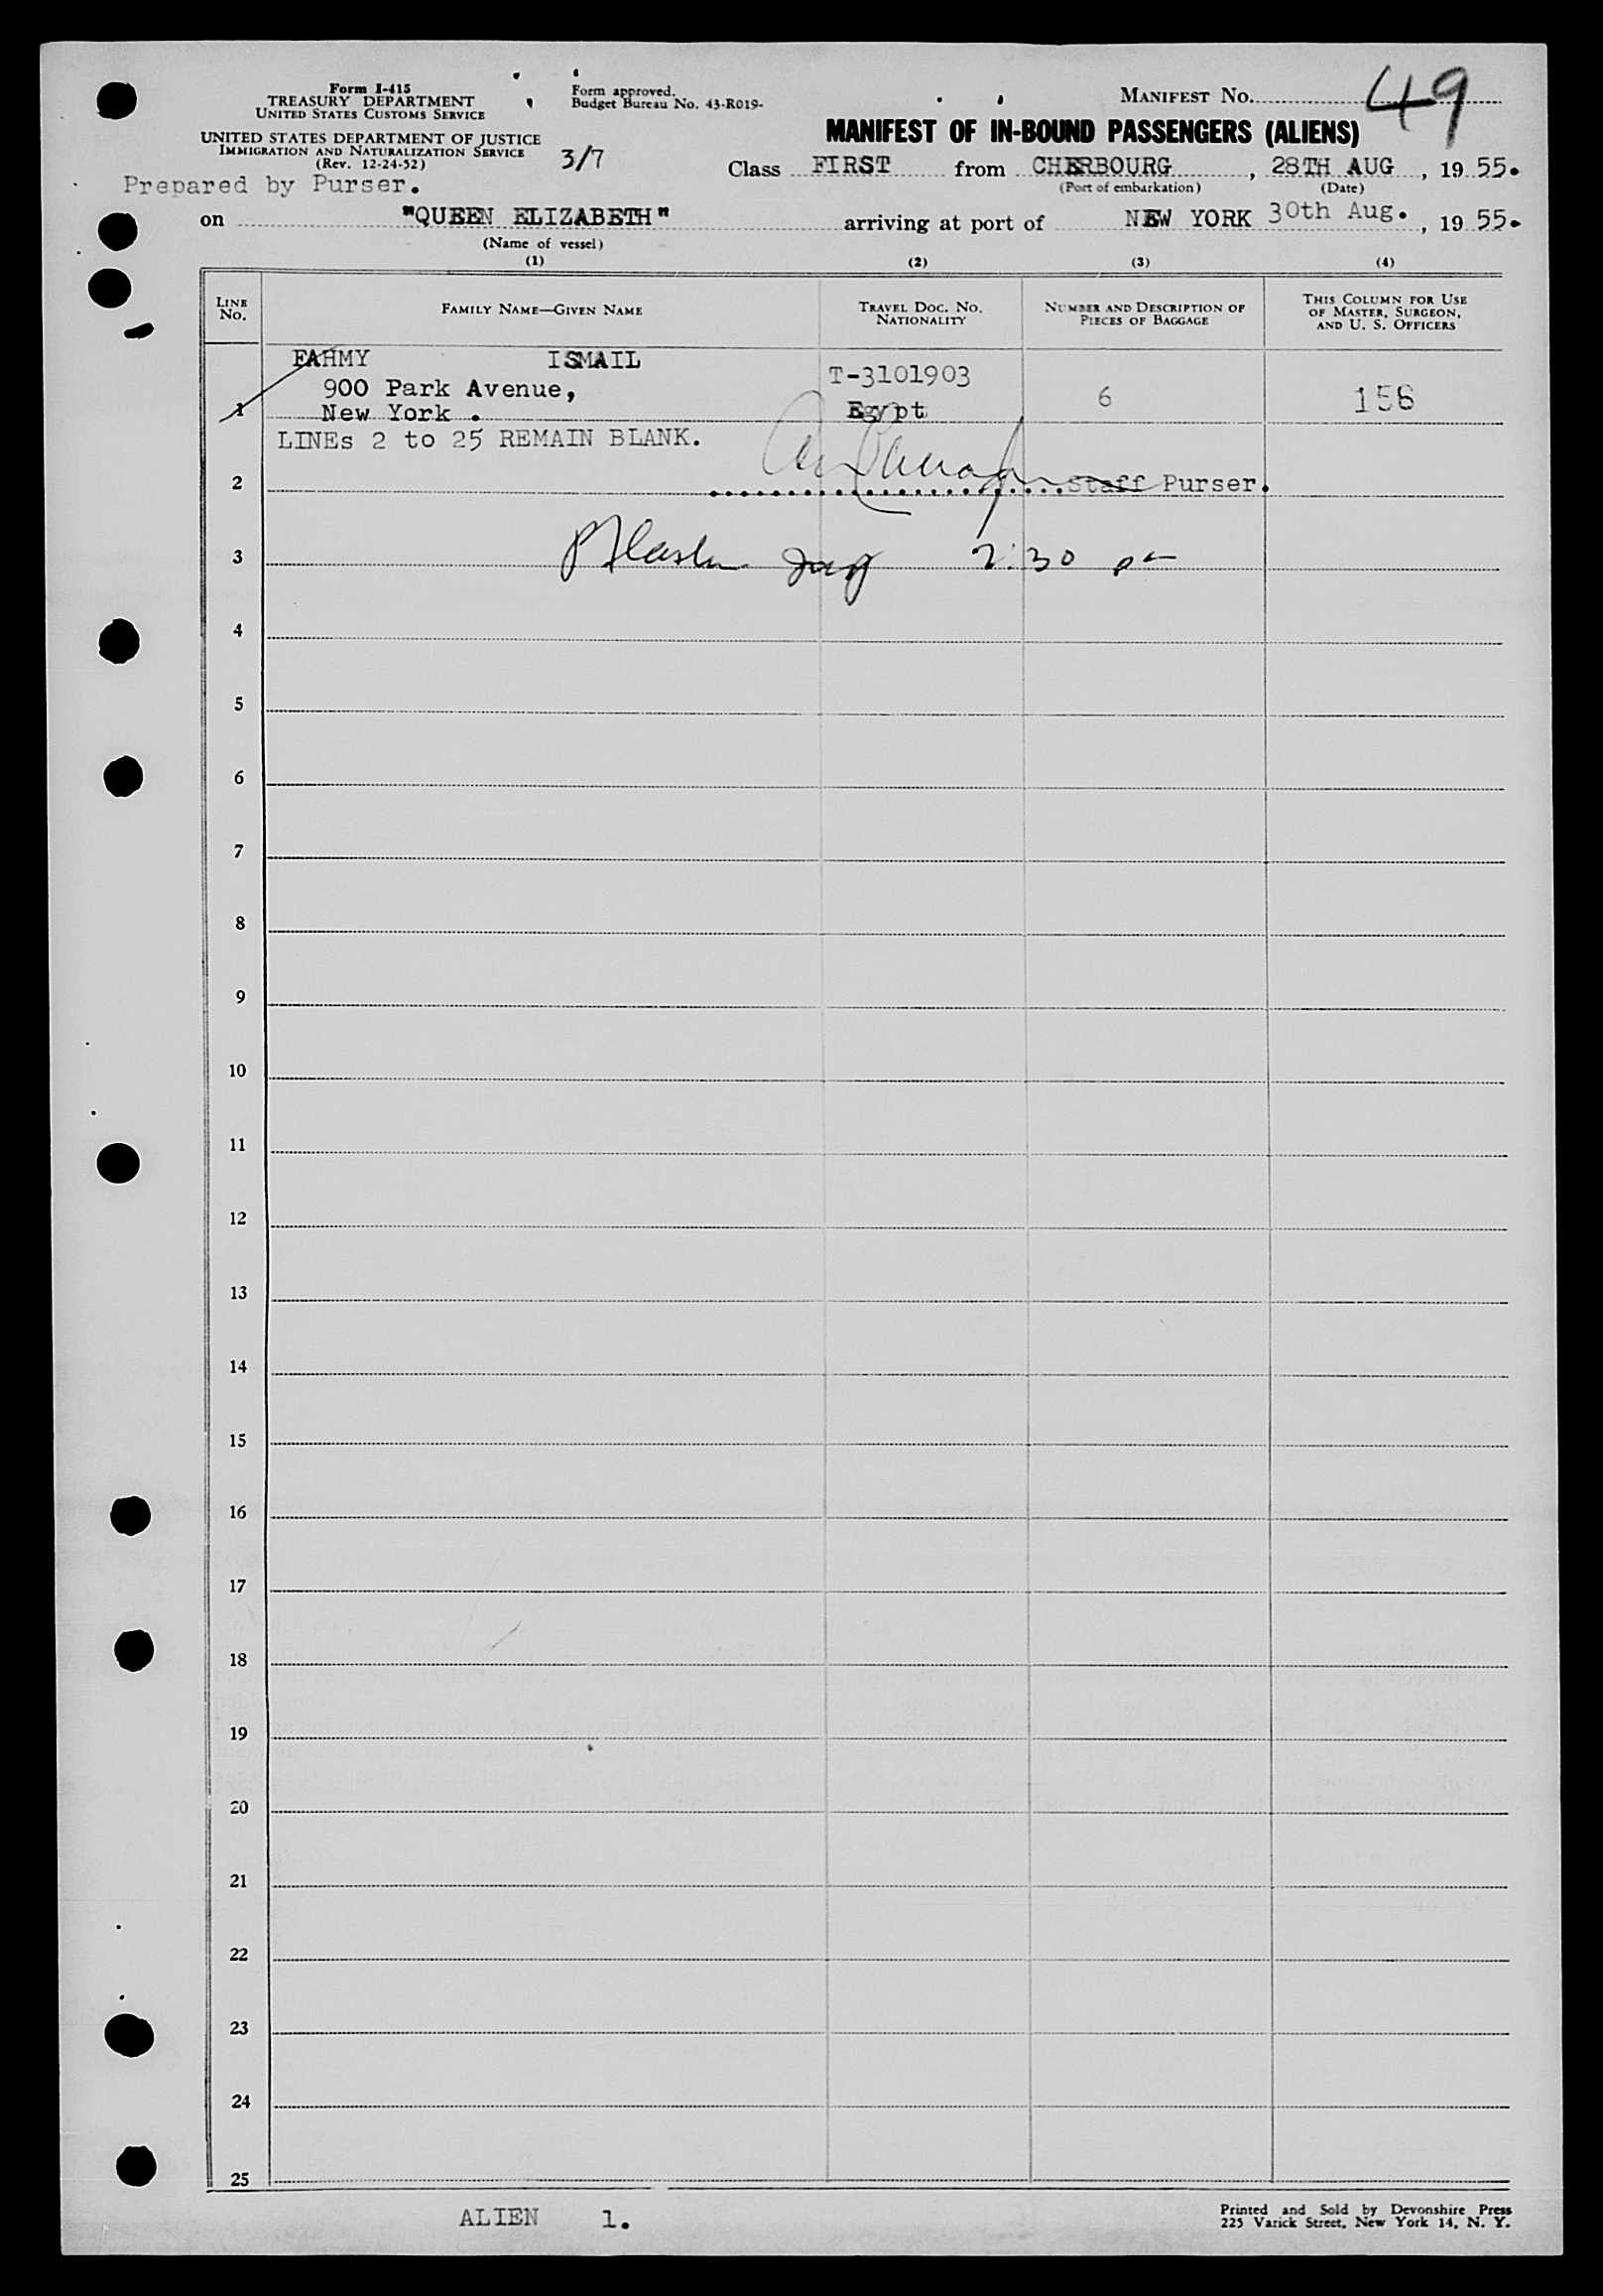 Form I-415
TREASURY DEPARTMENT
UNITED STATES CUSTOMS SERVICE
UNITED STATES DEPARTMENT OF JUSTICE
IMMIGRATION AND NATURALIZATION SERVICE
(Rev. 12-24-52)
Prepared by Purser.
3/7
Form approved.
Budget Bureau No. 43-R019-
MANIFEST NO. 49
MANIFEST OF IN-BOUND PASSENGERS (ALIENS)
Class FIRST from CHERBOURG, 28TH AUG, 19 55.
(Port of embarkation) (Date)
on "QUEEN ELIZABETH" arriving at port of NEW YORK 30th Aug., 19 55.
(Name of vessel)
(1) (2) (3) (4)
LINE NO. FAMILY NAME—GIVEN NAME TRAVEL DOC. NO. NATIONALITY NUMBER AND DESCRIPTION OF PIECES OF BAGGAGE THIS COLUMN FOR USE OF MASTER, SURGEON, AND U. S. OFFICERS
FAHMY ISMAIL T-3101903
900 Park Avenue, 6 156
1 New York . Egypt
LINEs 2 to 25 REMAIN BLANK.
2 Staff Purser.
3 2:30 pm
4
5
6
7
8
9
10
11
12
13
14
15
16
17
18
19
20
21
22
23
24
25
ALIEN 1.
Printed and Sold by Devonshire Press
225 Varick Street, New York 14, N. Y.